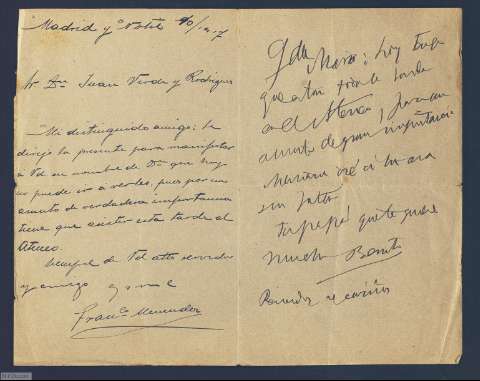 Madrid y
Sr Dn Juan Verde y Rodriguez
Mi distinguido amigo: le
dirijo la presente para manifestar
a Vd en nombre de Dn que hoy
no puede ir a verles, pues por un
asunto de verdadera importancia
tiene que asistir esta tarde al
Ateneo.
Siempre de Vd atto servidor
y amigo
Franco Menendez
hoy tengo
que estar toda la tarde
en el Ateneo,
asunto de gran importancia
Mañana iré a la casa
sin falta
Tu papá que te quiere
mucho Benito
Recuerdos y cariños